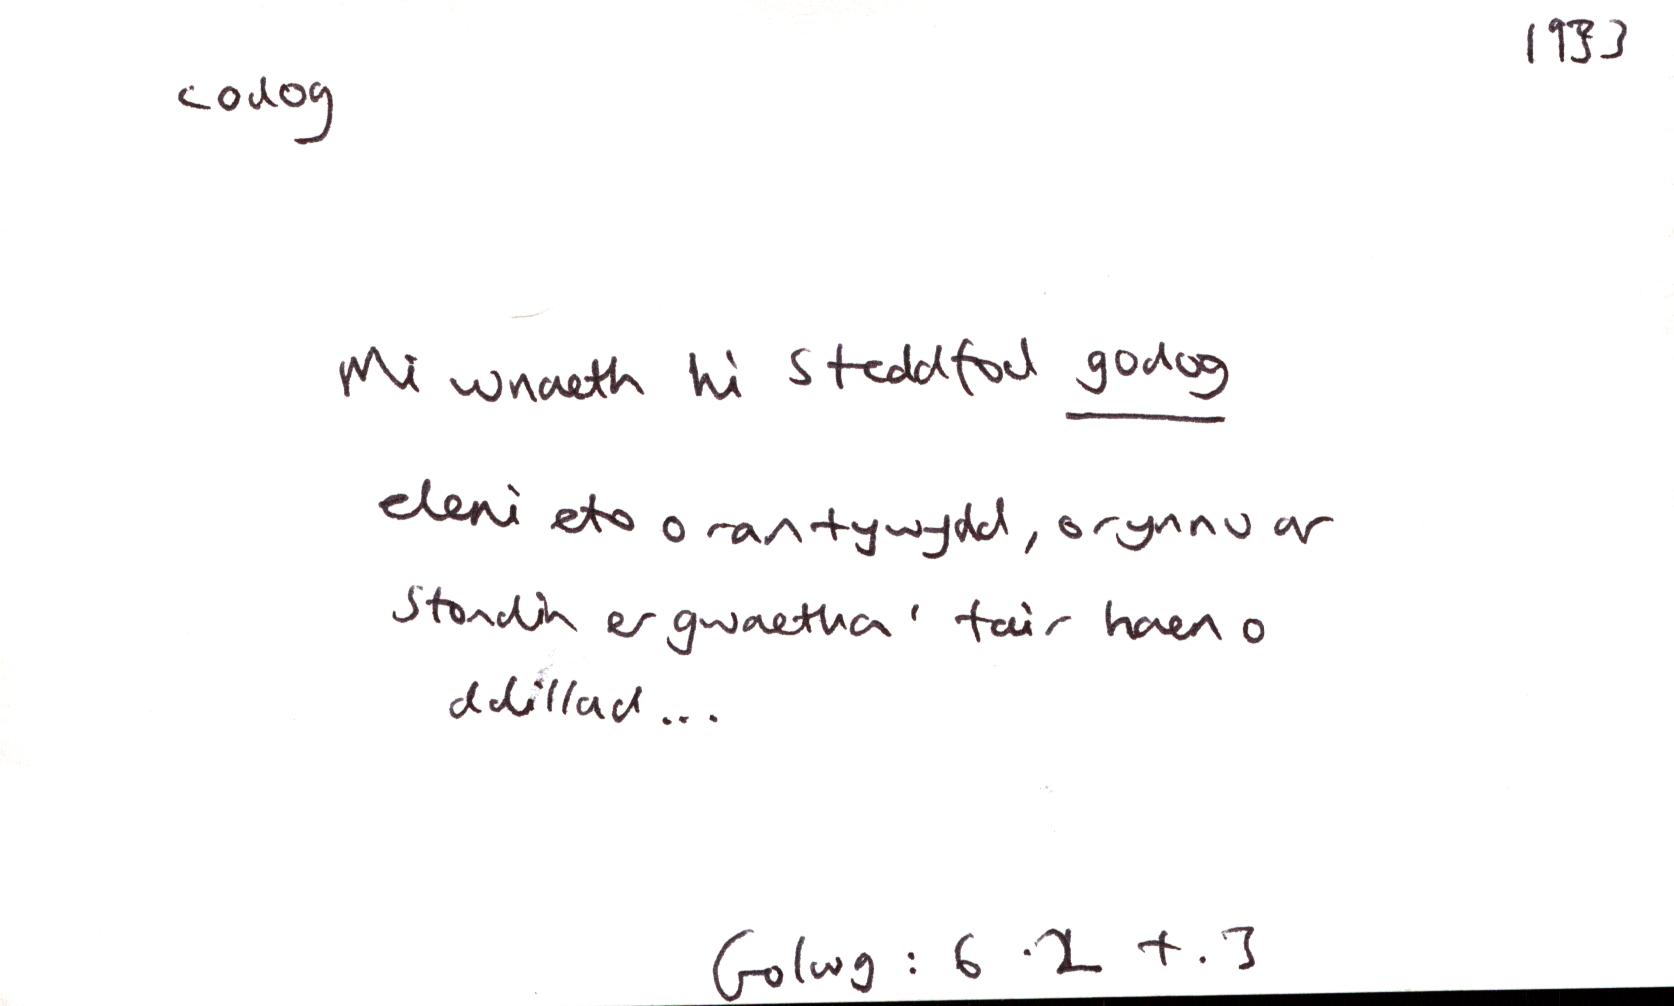 1993
codog
Mi wnaeth hi Steddfod godog
eleni eto o ran tywydd, o rynnu ar
stondin er gwaetha' tair haen o
ddillad...
Golwg: 6.2 t.3